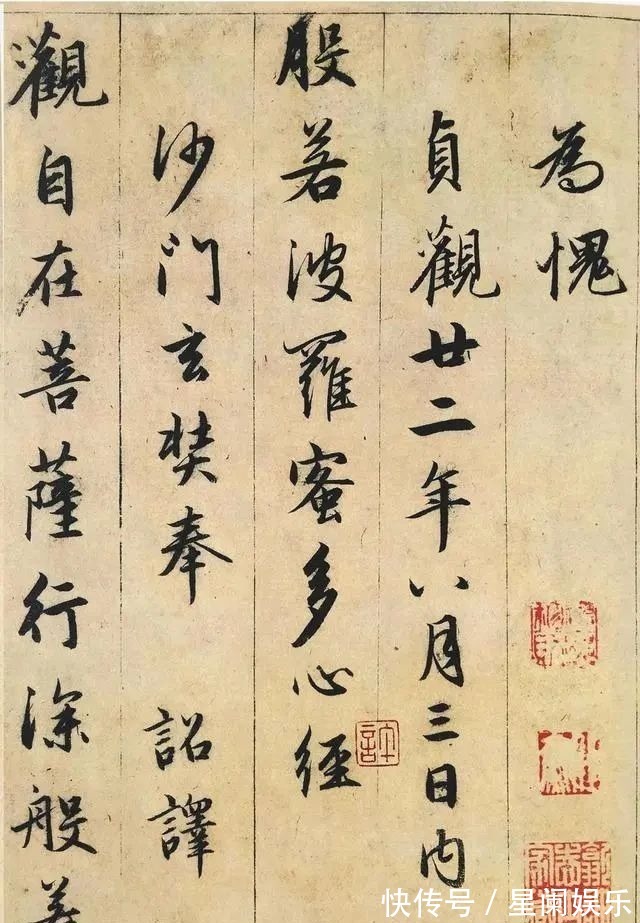 為愧
貞觀廿二年八月三日内
般若波羅蜜多心經
沙門玄奘奉 詔譯
觀自在菩薩行深般若
快传号 / 星阑娱乐